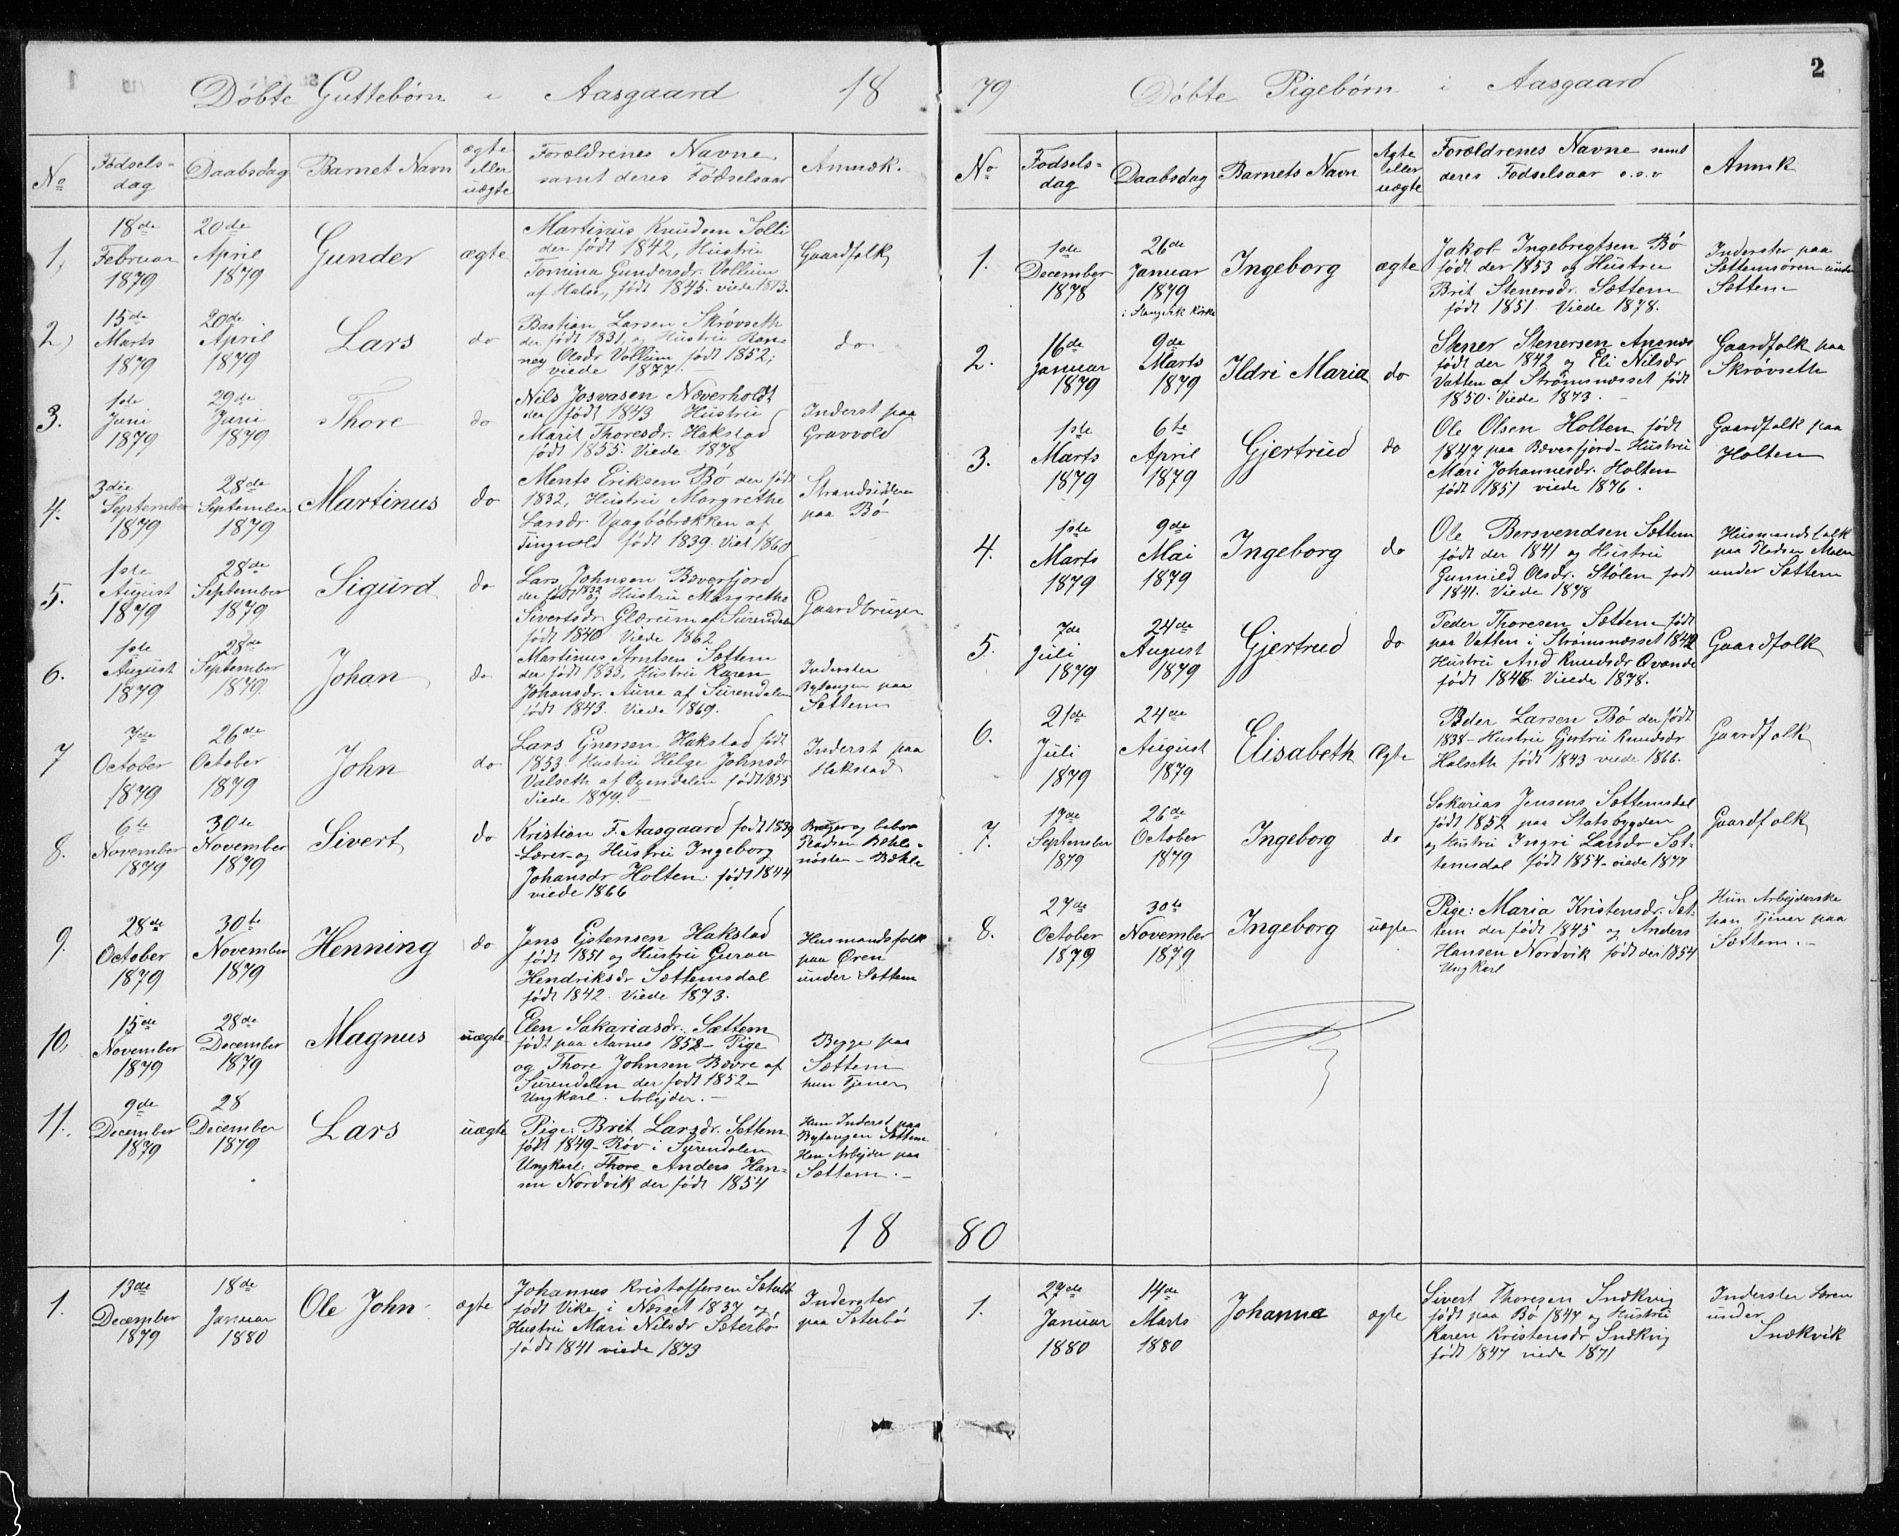 Døbte Guttebørn i Aasgaard 18
No
Fødsels-
dag
Daabsdag
Barnet Navn
ægte
eller
uægte
Forældrenes Navne
samt deres Fødselsaar
Anmæk.
1,
18de
Februar
1879
20de
April
1879
Gunder
ægte
Martinus Knudsen Solli
der født 1842, Hustru
Tomina Gundersdr. Vollum
af Halse, født 1845. viede 1873.
Gaardfolk
2,
15de
Marts
1879
20de
April
1879
Lars
do
Bastian Larsen Skrøvseth
der født 1831, og Hustru Ran-
ney Olsdr Vollum født 1852;
viede 1877. —
do
3.
1ste
Juni
1879
29de
Juni
1879
Thore
do
Nils Josvasen Næverholdt
der født 1843 Hustru
Marit Thoresdr. Hakstad
født 1855. Viede 1878
Inderst paa
Gravvold
4.
3die
September
1879
28de
September
1879
Martinus
do
Ments Eriksen Bø der født
1832, Hustru Margrethe
Larsdr.
Tingvold født 1839. Viet 1860
paa Bø
5.
1ste
August
1879
28de
September
1879
Sigurd
do
Lars Johnsen Bæverfjord
der født 1832 og Hustru Margrethe
Sivertsdr Glærum af Surendalen
født 1840 Viede 1862
Gaardbruger
6.
1ste
August
1879
28de
September
1879
Johan
do
Martinus Arntsen Sættem
der født 1833, Hustru Karen
Johansdr. Aune af Surendalen
født 1843. Viede 1869.
Inderster
Bytangen paa
Sættem
7
7de
October
1879
26de
October
1879
John
do
Lars Hakstad født
1853 Hustru Helge Johnsdr
Valseth af født 1855
Viede 1879. —
Inderst paa
Hakstad
8.
6te
November
1879
30de
November
1879
Sivert
do
Kristian F. Aasgaard født 1839
-Lærer- og Hustru Ingeborg
Johansdr Holten. født 1844
viede 1866
Bruger og bebor
Pladsen Bekle-
nösten - Bækle
9.
28de
October
1879
30te
November
1879
Henning
do
Jens Hakstad
født 1851 og Hustru Guraa
Hendriksdr Sættemsdal
født 1842. Viede 1873.
Husmandsfolk
paa Øren
under Sættem
10,
15de
November
1879
28de
December
1879
Magnus
uægte
Elen Sakariasdr. Sættem
født paa Aarnes 1852 - Pige
og Thore Johnsen Bævre af
Surendalen der født 1852 -
Ungkarl. Arbejder. —
Begge paa
Sættem
hun Tjener
11.
9de
December
1879
28
December
1879
Lars
uægte
Pige: Brit Larsdr. Sættem
født 1849 - Røv i Surendalen
Ungkarl: Thore Anders Han-
sen Nordvik der født 1854
Hun Inderst paa
Bytangen Sættem
Han Arbejder paa
Sættem. -
18
1.
13de
December
1879
18de
Januar
1880
Ole John
ægte
Johannes Kristoffersen Sæterbø
født Vike i Næsset 1837 og
Hustru Mari Nilsdr Sæterbø
født 1841 viede 1873
Inderster
paa Sæterbø
2
79 Døbte Pigebørn i Aasgaard
No
Fødsels-
dag
Daabsdag
Barnets Navn
Ægte
eller
uægte
Forældrenes Navne samt
deres Fødselsaar o.s.v
Anmk
1.
1ste
December
1878
26de
Januar
1879
i Stangvik Kirke
Ingeborg
ægte
Jakob Ingebregtsen Bø
født der 1853 og Hustru
Brit Stenersdr. Sættem
født 1851. Viede 1878.
Inderster paa
Sættemsøren under
Sættem
2.
16de
Januar
1879
9de
Marts
1879
Ildri Maria
do
Stener Stenersen Aasnæs
født der 1842 og Eli Nilsdr
Vatten af Strømsnæsset født
1850. Viede 1873. -
Gaardfolk paa
Skrøvseth
3.
1ste
Marts
1879
6te
April
1879
Gjertrud
do
Ole Olsen Holten født
1847 paa Bæverfjord - Hustru
Mari Johannesdr. Holten
født 1851 viede 1876.
Gaardfolk paa
Holten
4.
1ste
Marts
1879
9de
Mai
1879
Ingeborg
do
Ole Bersvendsen Sættem
født der 1841 og Hustru
Gunnild Olsdr. Stølen født
1841. Viede 1878
Husmandsfolk
paa Pladsen Moen
under Sættem
5.
7de
Juli
1879
24de
August
1879
Gjertrud
do
Peder Thoresen Sættem født
paa Vatten i Strømsnæsset 1842
Hustru And Knudsdr Qvande
født 1846 Viede 1878.
Gaardfolk
6.
21de
Juli
1879
24de
August
1879
Elisabeth
Ægte
Peder Larsen Bø der født
1838 - Hustru Gjertru Knudsdr
Halseth født 1843 viede 1866.
Gaardfolk
7.
17de
September
1879
26de
October
1879
Ingeborg
do
Sakarias Jensens Sættemsdal
født 1852 paa Statsbygden
og Hustru Ingri Larsdr Sæt-
temsdal født 1854 - viede 1877
Gaardfolk
8.
27de
October
1879
30te
November
1879
Ingeborg
uægte
Pige: Maria Kristensdr. Sæt-
tem der født 1845 og Anders
Hansen Nordvik født der 1854
Ungkarl
Hun Arbejderske
han Tjener paa
Sættem. -
80
1.
27de
Januar
1880
14de
Marts
1880
Johanne
ægte
Sivert Thoresen Snekvig
født paa Bø 1847 og Hustru
Karen Kristensdr Snekvig
født 1847 viede 1871
Inderster Søren
under
Snekvik